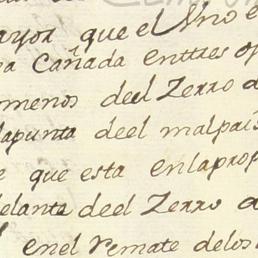 ayor que el Uno e
ra Cañada enttres op
omenos deel Zerro d
lapunta deel malpais
e que esta enlaprop
delante deel Zerro d
enel remate delos